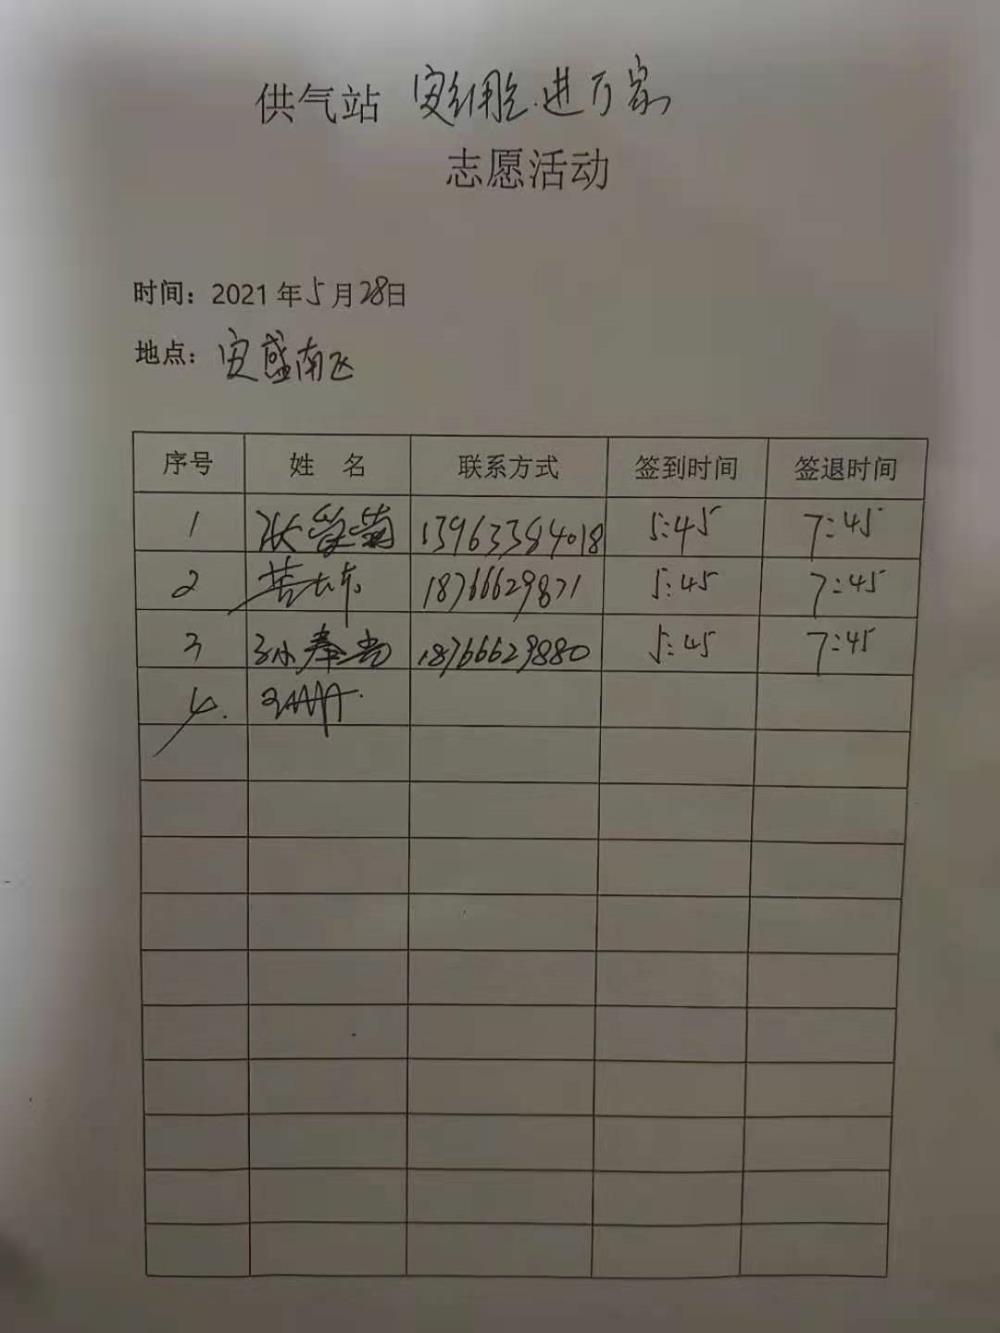 供气站 安细胞进万家
志愿活动
时间：2021年5月28日
地点：安盛南区
序号 姓 名 联系方式 签到时间 签退时间
1 张 菊 13963384018 5:45 7:45
2 18766629871 5:45 7:45
3 孙奉 18766629880 5:45 7:45
4.